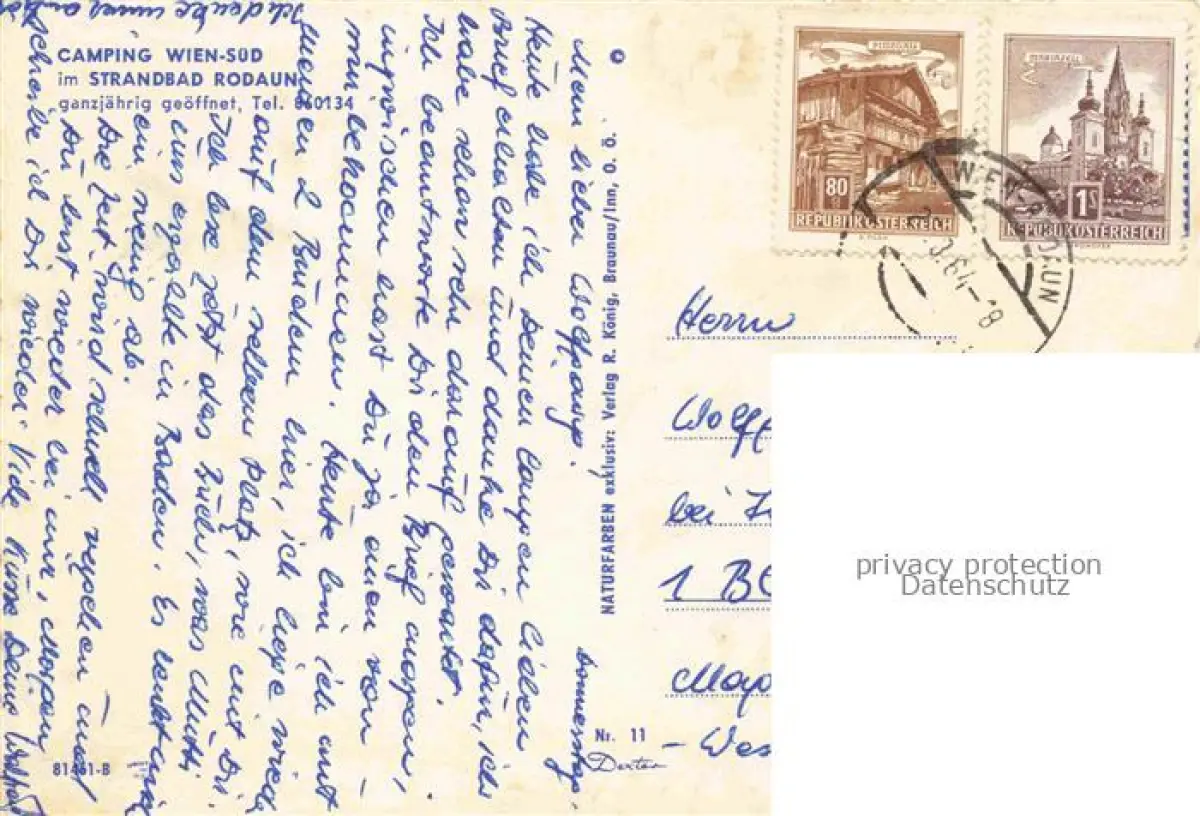 CAMPING WIEN-SÜD
im STRANDBAD RODAUN
ganzjährig geöffnet, Tel. 860134
Donnerstag.
Mein lieber Wolfgang.
Heute habe ich Deinen langen lieben
Brief erhalten und danke Dir dafür, ich
habe schon sehr darauf gewartet.
Ich beantworte Dir den Brief morgen,
inzwischen hast Du ja einen von
mir bekommen. Heute bin ich mit
2 Stunden hier, ich liege wieder
auf dem selben Platz, wie mit Dir.
Ich lese jetzt das Buch, was Mutti
uns
in Baden. Es lenkt mich
ein wenig ab.
Die Zeit wird schnell vergehen und
Du bist wieder bei mir, morgen
schreibe ich Dir wieder. Viele Küsse Deine
Ich denke immer an
NATURFARBEN exklusiv: Verlag R. König, Braunau/Inn, O. Ö.
81461-B
Nr. 11
Dexter
80
REPUBLIK ÖSTERREICH
MARIAZELL
1S
REPUBLIK ÖSTERREICH
WIEN
Herrn
Wolfg
bei
1
- Wes
privacy protection
Datenschutz